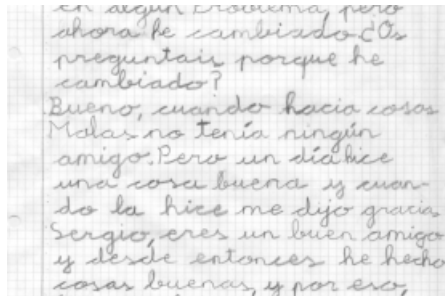 en algún problema, pero
ahora he cambiado ¿Os
preguntais porque he
cambiado?
Bueno, cuando hacia cosas
Malas no tenía ningún
amigo. Pero un día hice
una cosa buena y cuan-
do la hice me dijo gracia
Sergio, eres un buen amigo
y desde entonces he hecho
cosas buenas, y por eso,